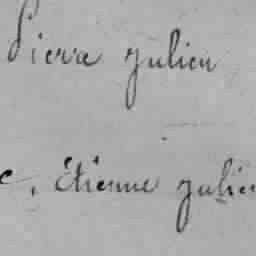 Piera Julien
c. Etienne Julien